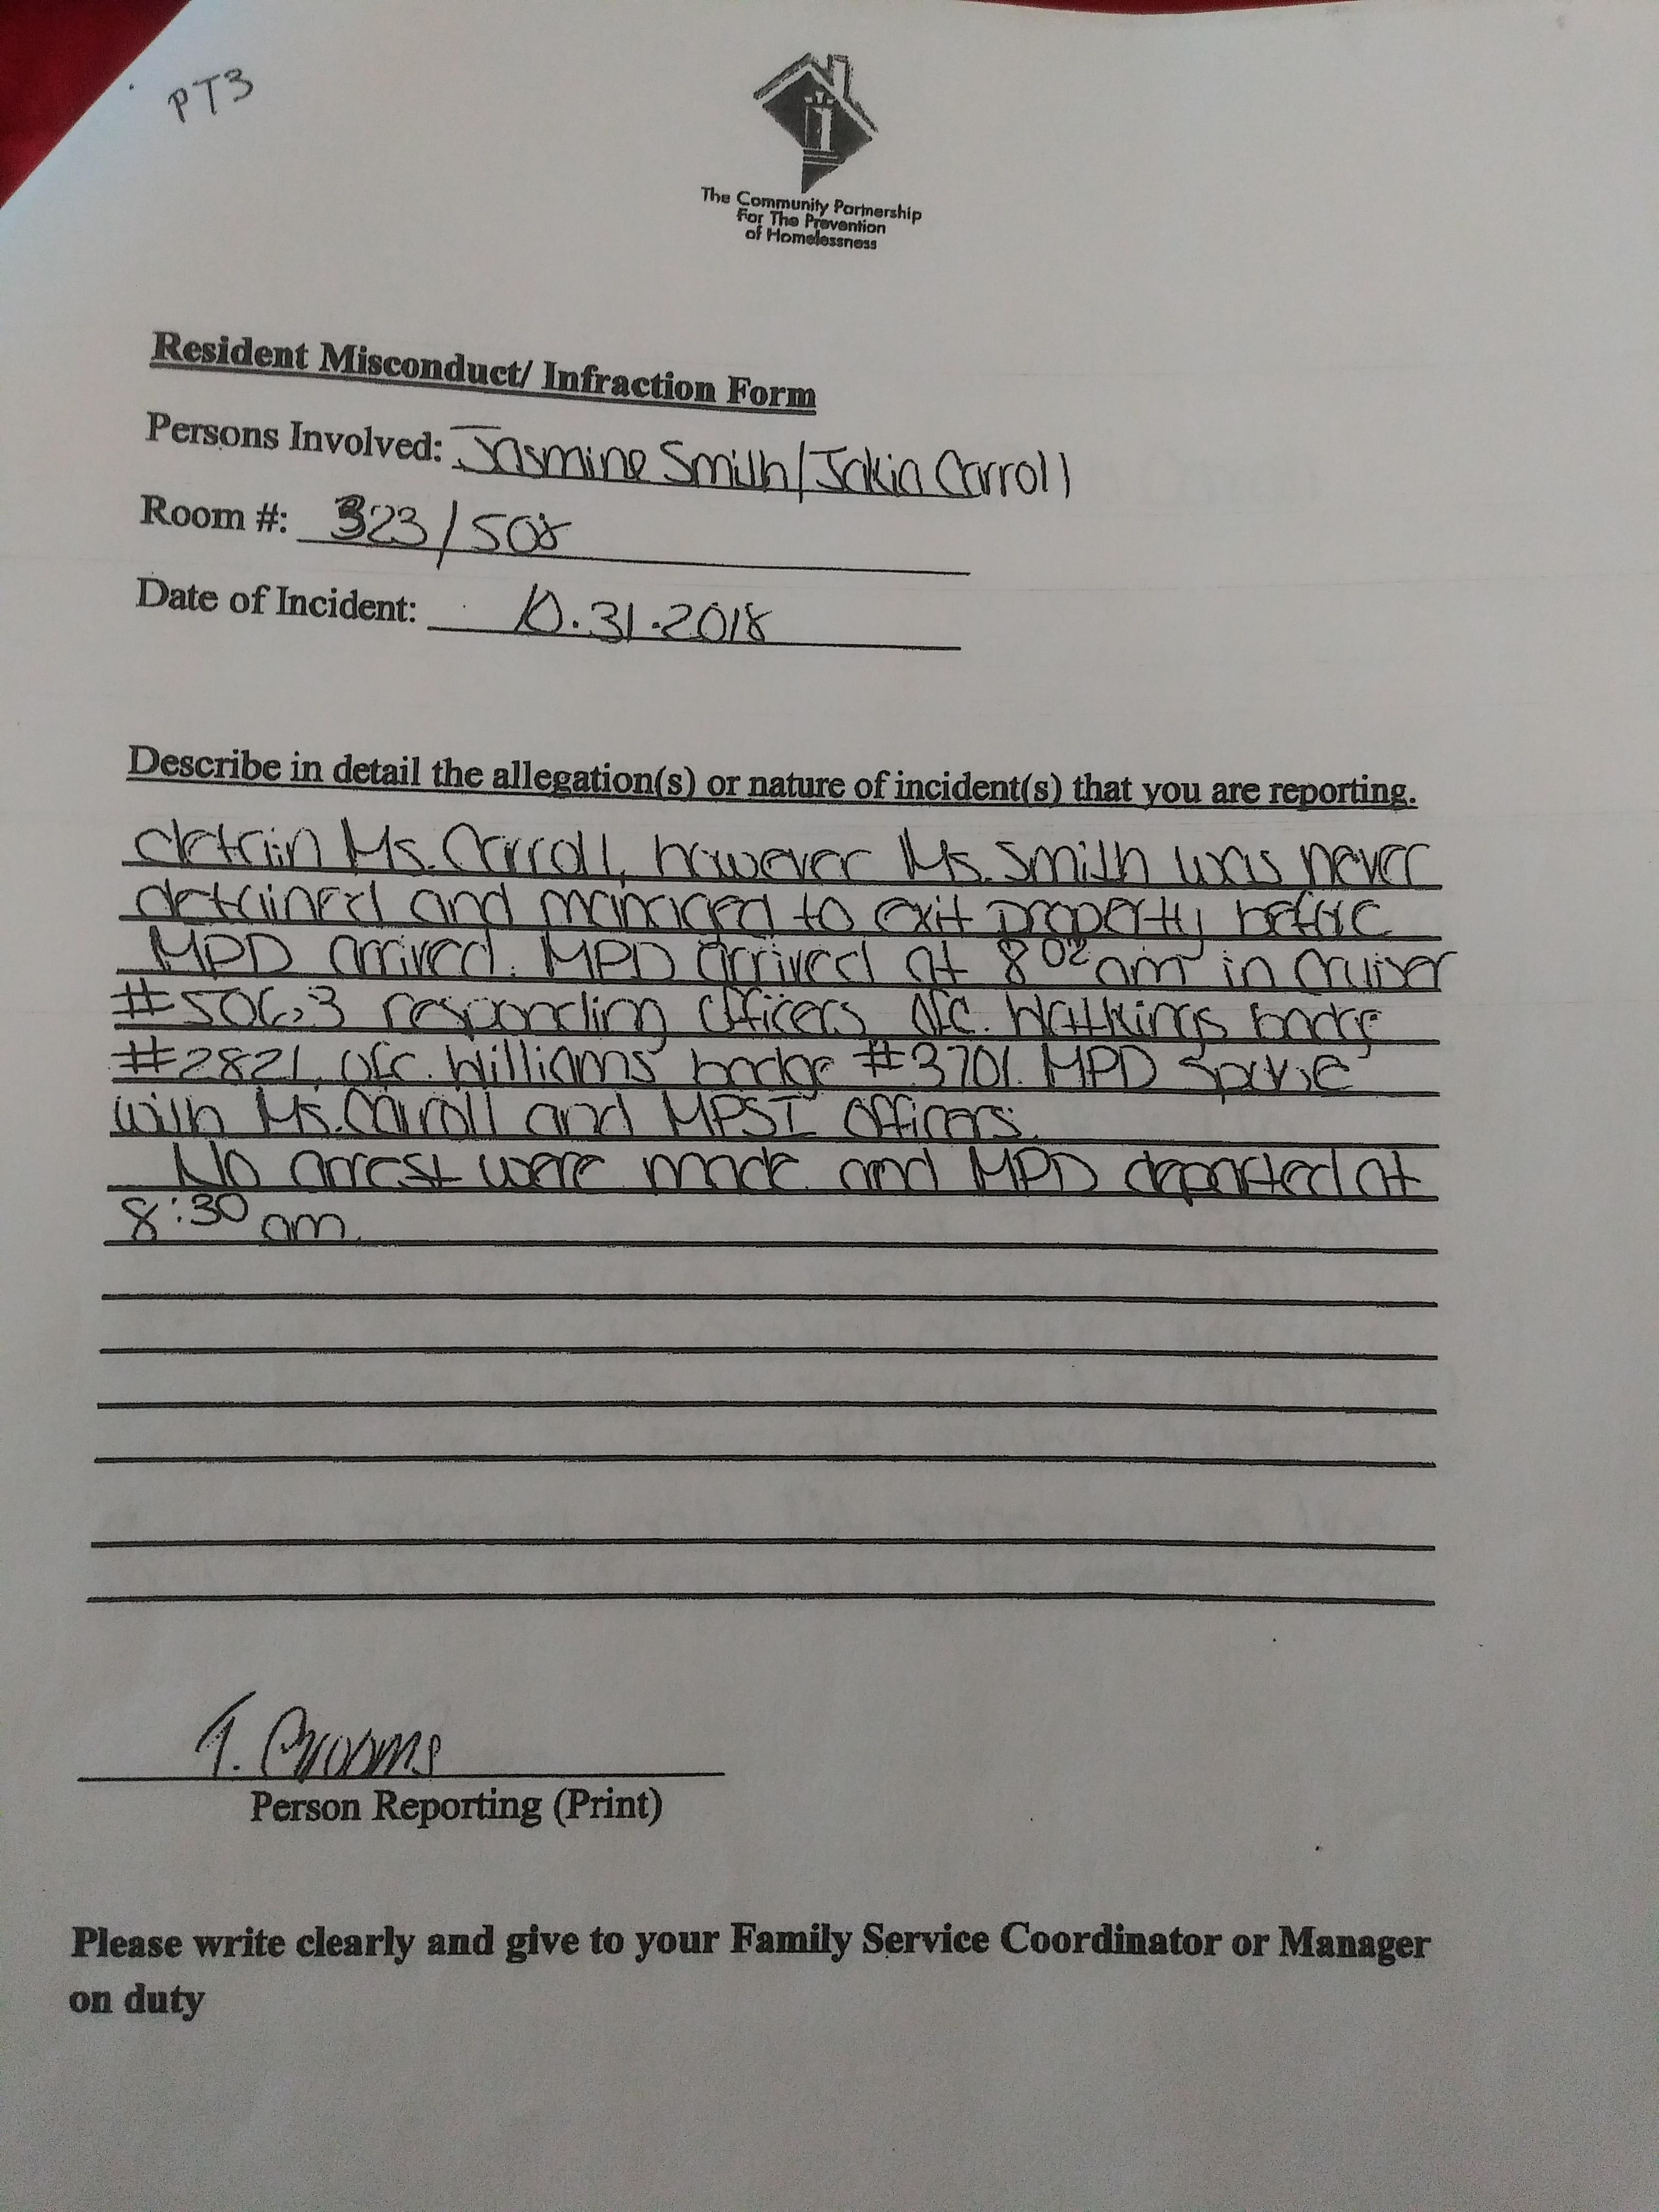 PT3
The Community Partnership
For The Prevention
of Homelessness
Resident Misconduct/ Infraction Form
Persons Involved: Jasmine Smith/Jakia Carroll
Room #: 323/508
Date of Incident: 10.31.2018
Describe in detail the allegation(s) or nature of incident(s) that you are reporting.
detain Ms. Carroll, however Ms. Smith was never
detained and managed to exit property before
MPD arrived. MPD arrived at 8 02 am in cruiser
#5063 responding officers ofc. Watkings badge
#2821, ofc. Williams badge #3701. MPD spoke
with Ms. Carroll and MPSI officers.
No arrest were made and MPD departed at
8:30 am.
T. Brooms
Person Reporting (Print)
Please write clearly and give to your Family Service Coordinator or Manager
on duty